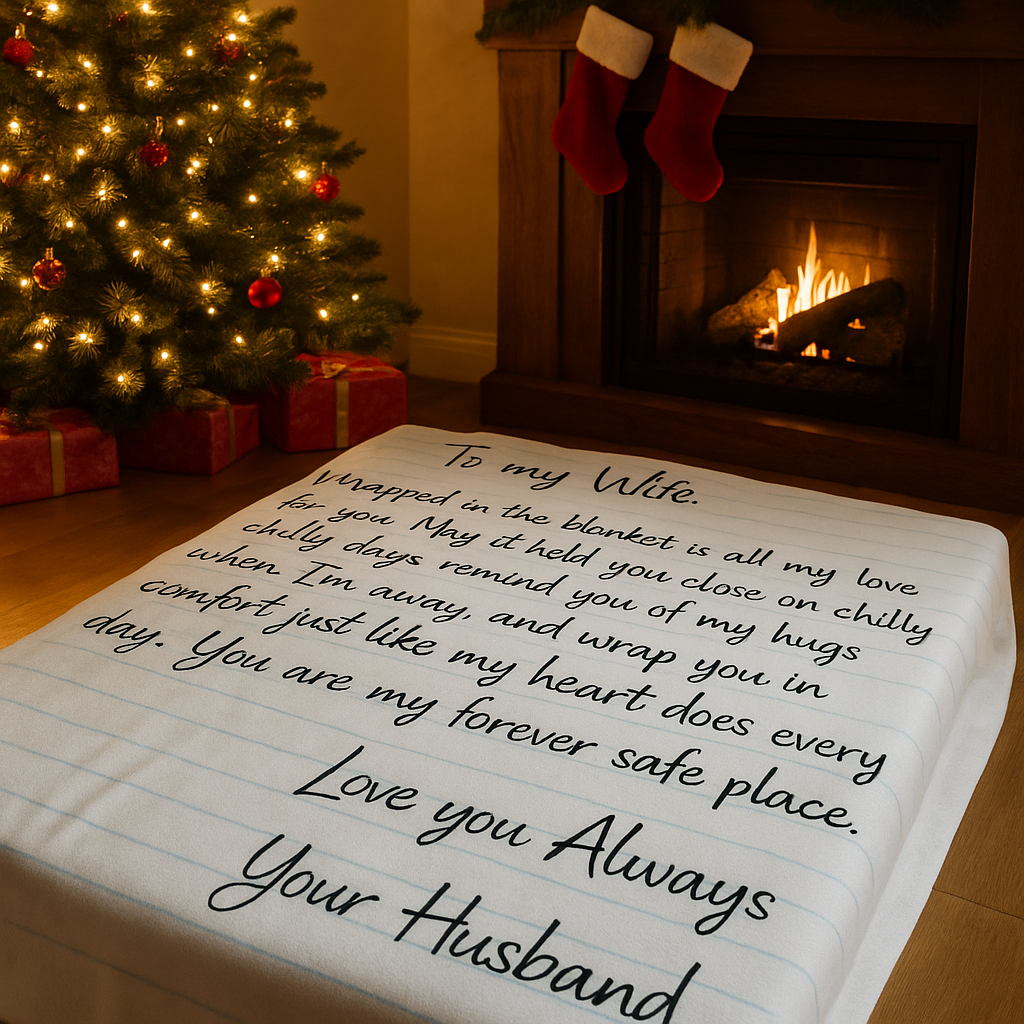 To my Wife.
Wrapped in the blanket is all my love
for you May it held you close on chilly
chilly days remind you of my hugs
when I'm away, and wrap you in
comfort just like my heart does every
day. You are my forever safe place.
Love you Always
Your Husband